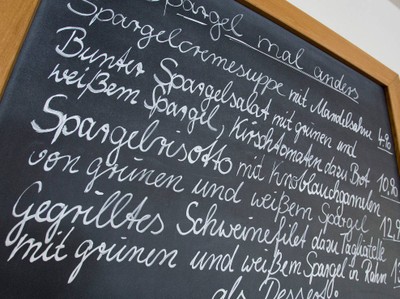 Spargel mal anders
Spargelcremesuppe mit Mandelsahne 4.80
Bunter Spargelsalat mit grünen und
weißem Spargel, Kirschtomaten dazu Brot 10,80
Spargelrisotto mit Knoblauchgarnelen
von grünen und weißem Spargel 12.9
Gegrilltes Schweinefilet dazu Tagliatelle
mit grünen und weißem Spargel in Rahm 13
als Dessert